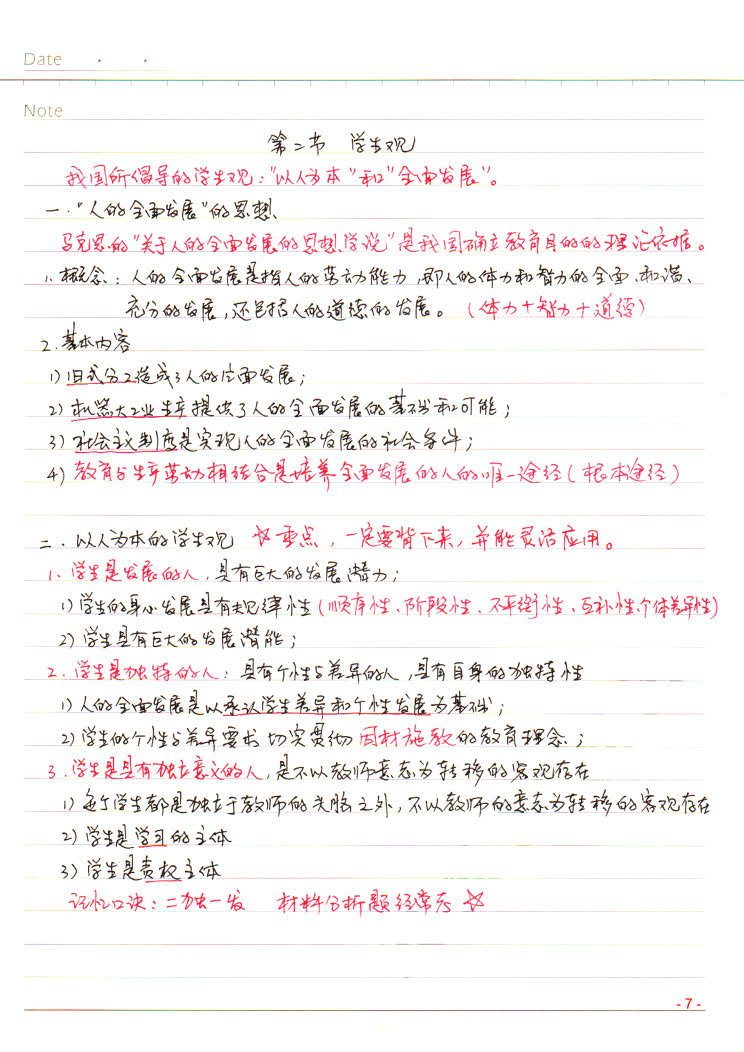 Date
Note
第二节 学生观
我国所倡导的学生观："以人为本"和"全面发展"。
一."人的全面发展"的思想
马克思的"关于人的全面发展的思想学说"是我国确立教育目的的理论依据。
1.概念：人的全面发展是指人的劳动能力，即人的体力和智力的全面、和谐、
充分的发展，还包括人的道德的发展。（体力+智力+道德）
2.基本内容
1)旧式分工造成了人的片面发展；
2)机器大工业生产提供了人的全面发展的基础和可能；
3)社会主义制度是实现人的全面发展的社会条件；
4)教育与生产劳动相结合是培养全面发展的人的唯一途径（根本途径）
二.以人为本的学生观 ☆重点，一定要背下来，并能灵活应用。
1.学生是发展的人，具有巨大的发展潜力；
1)学生的身心发展具有规律性（顺序性、阶段性、不平衡性、互补性、个体差异性）
2)学生具有巨大的发展潜能；
2.学生是独特的人：具有个性与差异的人，具有自身的独特性
1)人的全面发展是以承认学生差异和个性发展为基础；
2)学生的个性与差异要求切实贯彻因材施教的教育理念；
3.学生是具有独立意义的人，是不以教师意志为转移的客观存在
1)每个学生都是独立于教师的头脑之外，不以教师的意志为转移的客观存在
2)学生是学习的主体
3)学生是责权主体
记忆口诀：二独一发 材料分析题经常考☆
-7-